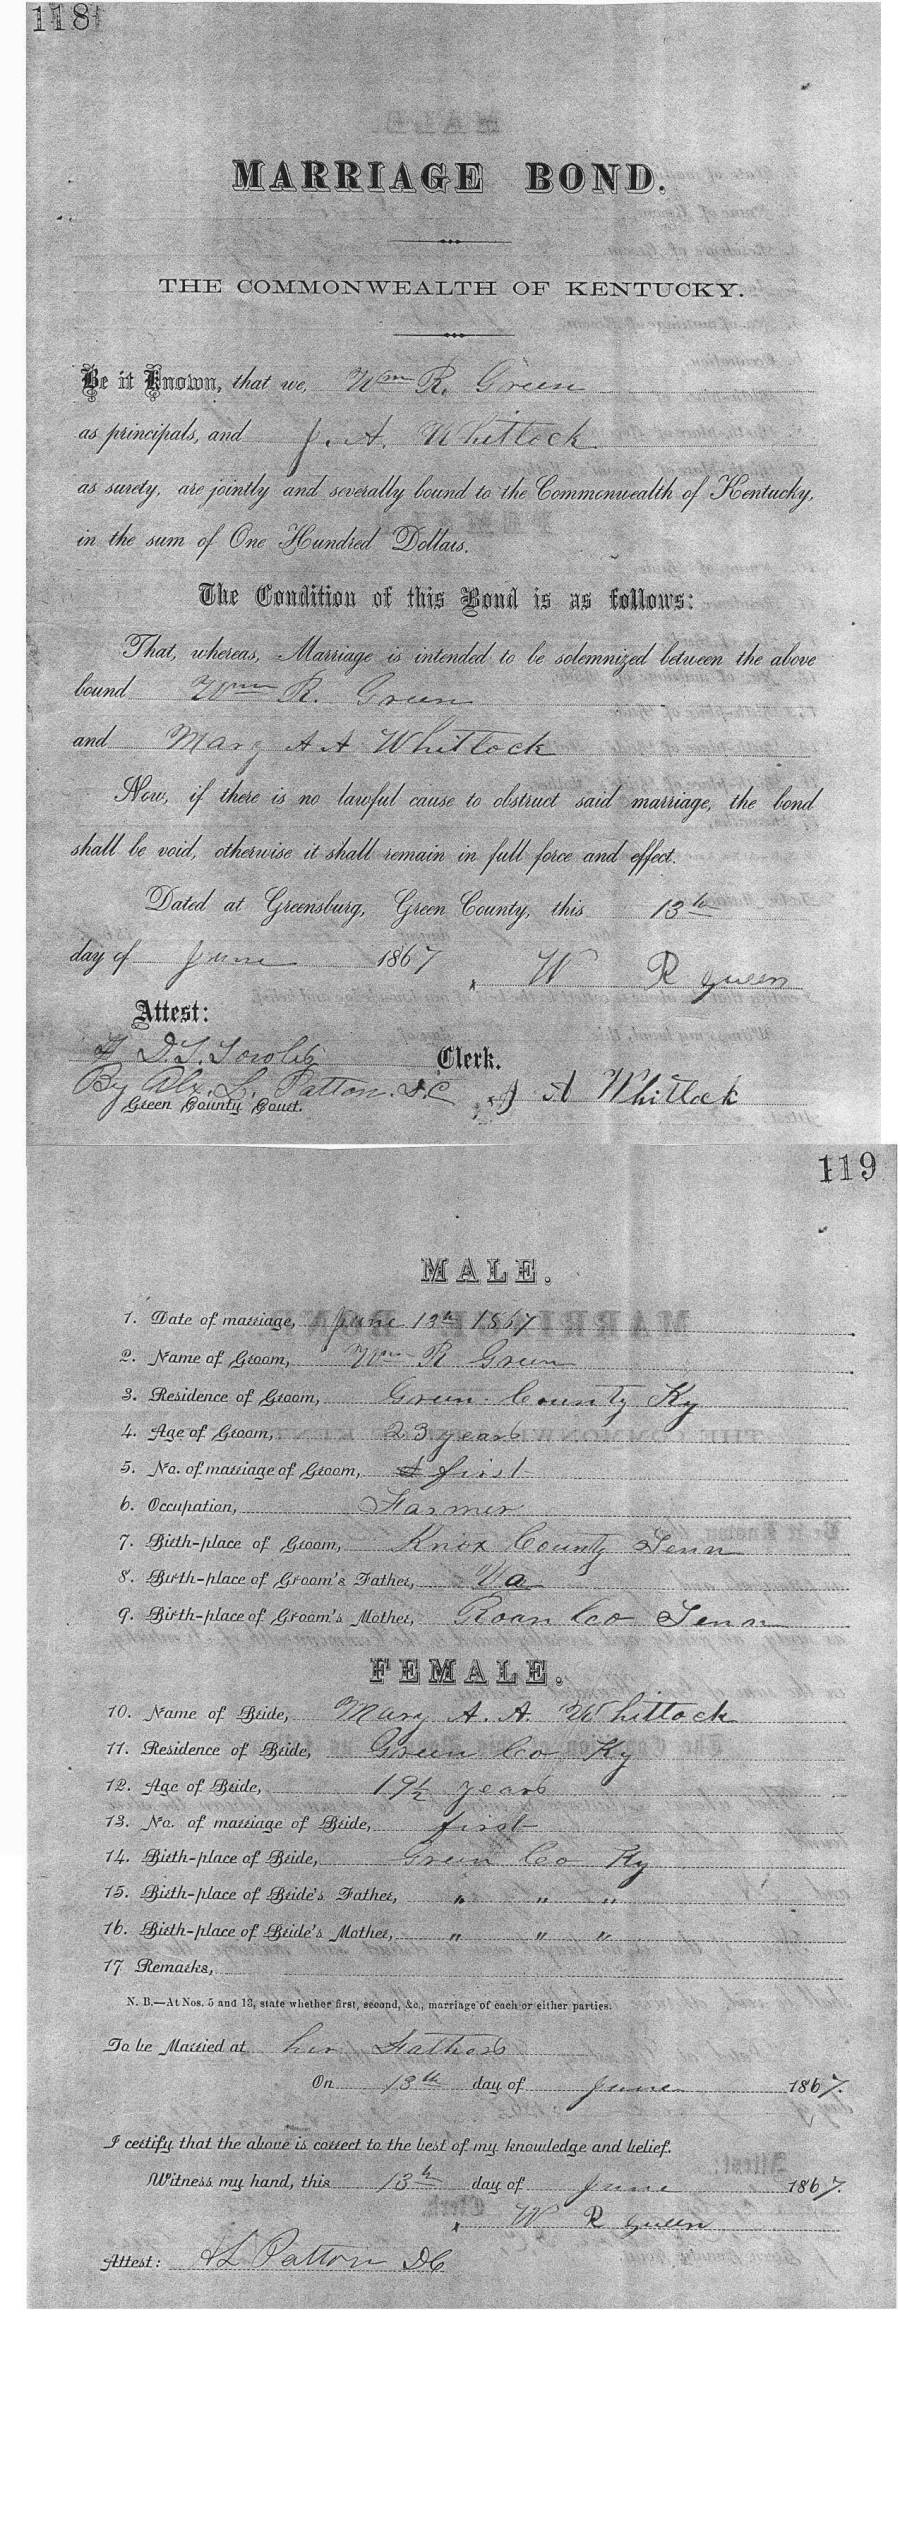 118
MARRIAGE BOND.
THE COMMONWEALTH OF KENTUCKY.
Be it Known, that we, Wm R. Green
as principals, and J. A. Whitlock
as surety, are jointly and severally bound to the Commonwealth of Kentucky,
in the sum of One Hundred Dollars.
The Condition of this Bond is as follows:
That, whereas, Marriage is intended to be solemnized between the above
bound Wm R. Green
and Mary A A Whitlock
Now, if there is no lawful cause to obstruct said marriage, the bond
shall be void, otherwise it shall remain in full force and effect.
Dated at Greensburg, Green County, this 13th
day of June 1867
W R Green
Attest:
D. T. Towles Clerk.
By Alex. L. Patton. D.C
Green County Court.
J A Whitlock
119
MALE.
1. Date of marriage, June 13th 1867
2. Name of Groom, Wm R Green
3. Residence of Groom, Green County Ky
4. Age of Groom, 23 years
5. No. of marriage of Groom, first
6. Occupation, Farmer
7. Birth-place of Groom, Knox County Tenn
8. Birth-place of Groom's Father, Va
9. Birth-place of Groom's Mother, Roan Co Tenn
FEMALE.
10. Name of Bride, Mary A. A. Whitlock
11. Residence of Bride, Green Co Ky
12. Age of Bride, 19½ years
13. No. of marriage of Bride, first
14. Birth-place of Bride, Green Co Ky
15. Birth-place of Bride's Father, " " "
16. Birth-place of Bride's Mother, " " "
17 Remarks,
N. B.—At Nos. 5 and 13, state whether first, second, &c., marriage of each or either parties.
To be Married at her Fathers
On 13th day of June 1867.
I certify that the above is correct to the best of my knowledge and belief.
Witness my hand, this 13th day of June 1867.
W R Green
Attest: A L Patton DC